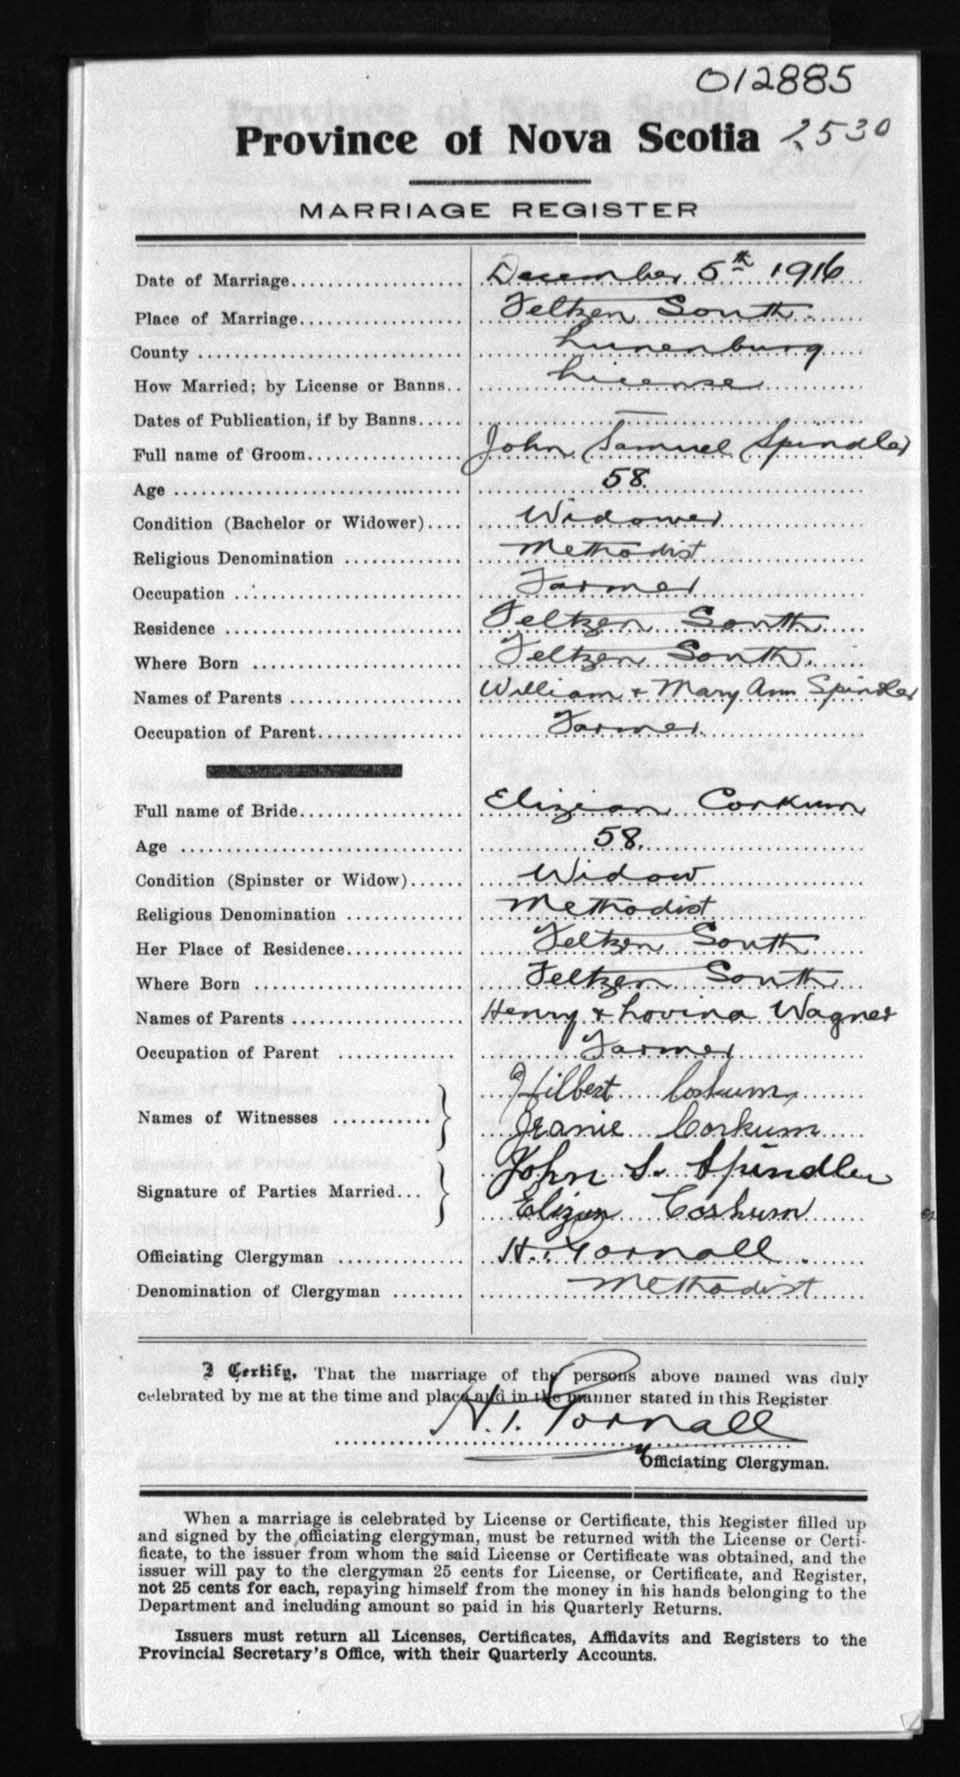 012885
Province of Nova Scotia 2530
MARRIAGE REGISTER
Date of Marriage.................... December 5th 1916
Place of Marriage................... Feltzen South.
County .............................. Lunenburg
How Married; by License or Banns.. License
Dates of Publication, if by Banns.....
Full name of Groom.................. John Samuel Spindler
Age ................................ 58.
Condition (Bachelor or Widower).... Widower
Religious Denomination ............. Methodist
Occupation ......................... Farmer
Residence .......................... Feltzen South
Where Born ......................... Feltzen South.
Names of Parents ................... William & Mary Ann Spindler
Occupation of Parent................ Farmer
Full name of Bride.................. Elizian Corkum
Age ................................ 58.
Condition (Spinster or Widow)...... Widow
Religious Denomination ............. Methodist
Her Place of Residence............. Feltzen South
Where Born ......................... Feltzen South
Names of Parents ................... Henry & Lovina Wagner
Occupation of Parent ............. Farmer
Hilbert Corkum
Names of Witnesses ...........
Jeanie Corkum
John S. Spindler
Signature of Parties Married...
Elizian Corkum
Officiating Clergyman .............. H. T. Gornall.
Denomination of Clergyman ........ Methodist
I Certify, That the marriage of the persons above named was duly
celebrated by me at the time and place and in the manner stated in this Register
H. T. Gornall
Officiating Clergyman.
When a marriage is celebrated by License or Certificate, this Register filled up
and signed by the officiating clergyman, must be returned with the License or Certi-
ficate, to the issuer from whom the said License or Certificate was obtained, and the
issuer will pay to the clergyman 25 cents for License, or Certificate, and Register,
not 25 cents for each, repaying himself from the money in his hands belonging to the
Department and including amount so paid in his Quarterly Returns.
Issuers must return all Licenses, Certificates, Affidavits and Registers to the
Provincial Secretary's Office, with their Quarterly Accounts.